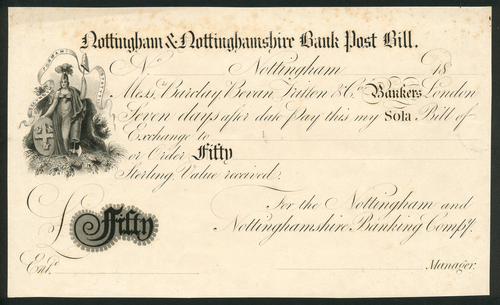 Nottingham & Nottinghamshire Bank Post Bill.
No Nottingham 18
Messrs Barclay Bevan, Tritton & Co. Bankers London
Seven days after date Pay this my Sola Bill of
Exchange to
or Order Fifty
Sterling, Value received.
For the Nottingham and
£ Fifty Nottinghamshire Banking Compy.
Entd. Manager.